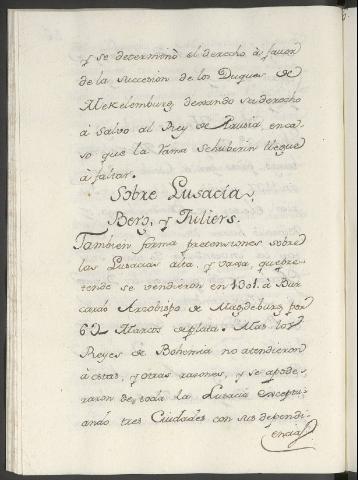 y se determinò el derecho à favor
de la succesion de los Duques de
Mekelemburg, dexando su derecho
à salvo al Rey de Prusia en ca-
so que la rama Schuberin llegue
à faltar.
Sobre Lusacia,
Berg, y Juliers.
Tambien forma pretensiones sobre
las Lusacias alta, y vaxa, que pre-
tende se vendieron en 1301. à Bur-
cardo Arzobispo de Magdeburg por
6 Marcos de plata. Mas los
Reyes de Bohemia no atendieron
à estas, y otras razones, y se apode-
raron de toda la Lusacia exceptu-
ando tres Ciudades con sus dependi-
encias